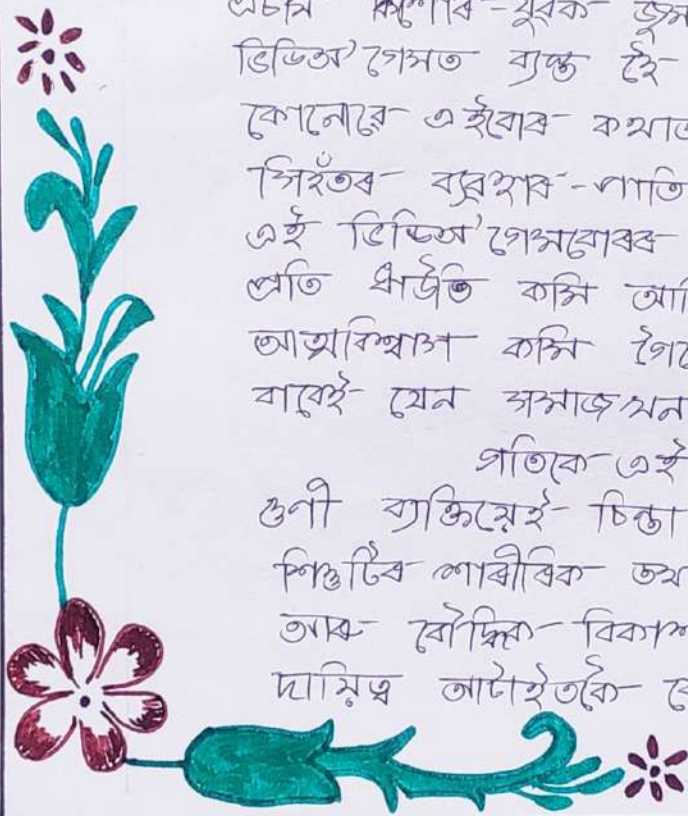 এচাম কিশোৰ-যুৱক
ভিডিঅ' গেমত ব্যস্ত হৈ
কোনোৱে এইবোৰ কথাত
সিহঁতৰ ব্যৱহাৰ-পাতি
এই ভিডিঅ' গেমবোৰৰ
প্ৰতি ধাউতি কমি আ
আত্মবিশ্বাস কমি গৈ
বাবেই যেন সমাজখন
গতিকে এই
গুণী ব্যক্তিয়েই চিন্তা
শিশুটিৰ শাৰীৰিক তথ
আৰু বৌদ্ধিক বিকাশ
দায়িত্ব আটাইতকৈ